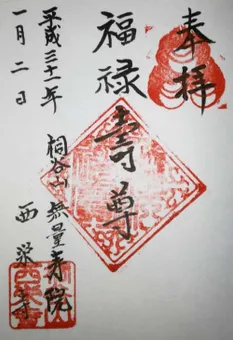 奉拝
福禄
寿尊
平成三十一年
一月二日
桐谷山 無量寿院
西栄寺